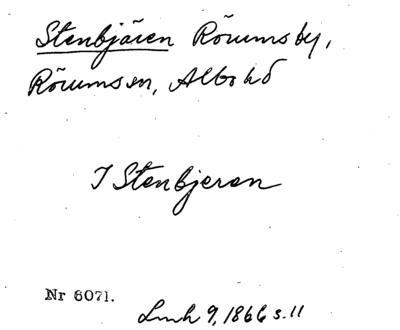 Stenbjären Rörums by,
Rörums sn, Albo hd
I Stenbjeren
Nr 6071.
Lmh 9, 1866 s. 11